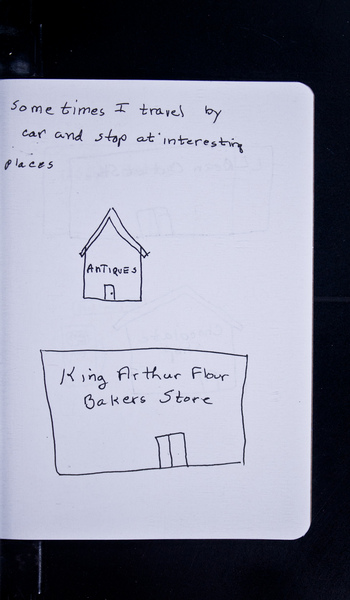 Some times I travel by
car and stop at interesting
places
ANTIQUES
King Arthur Flour
Bakers Store